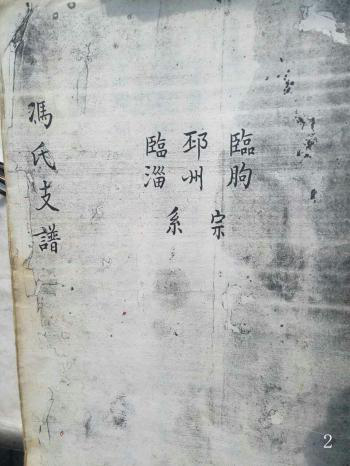 臨朐
宗
邳州
系
臨淄
馮氏支譜
2